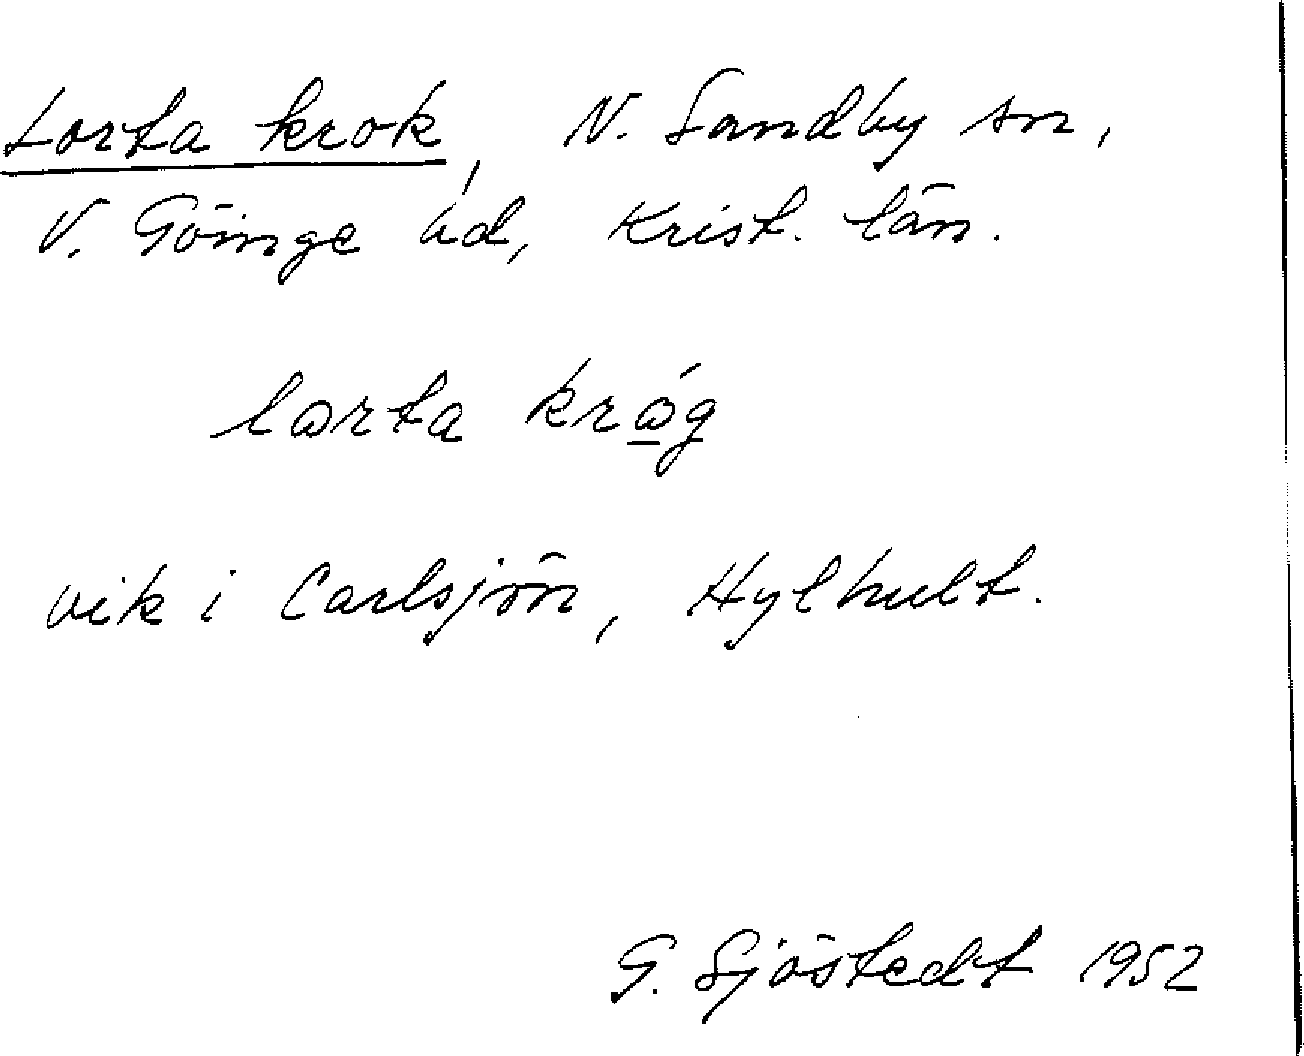 Lorta krok, N. Sandby sn,
V. Göinge hd, Krist. län.
lɷrta krɷ̲́g
vik i Carlsjön, Hylhult.
G. Sjöstedt 1952